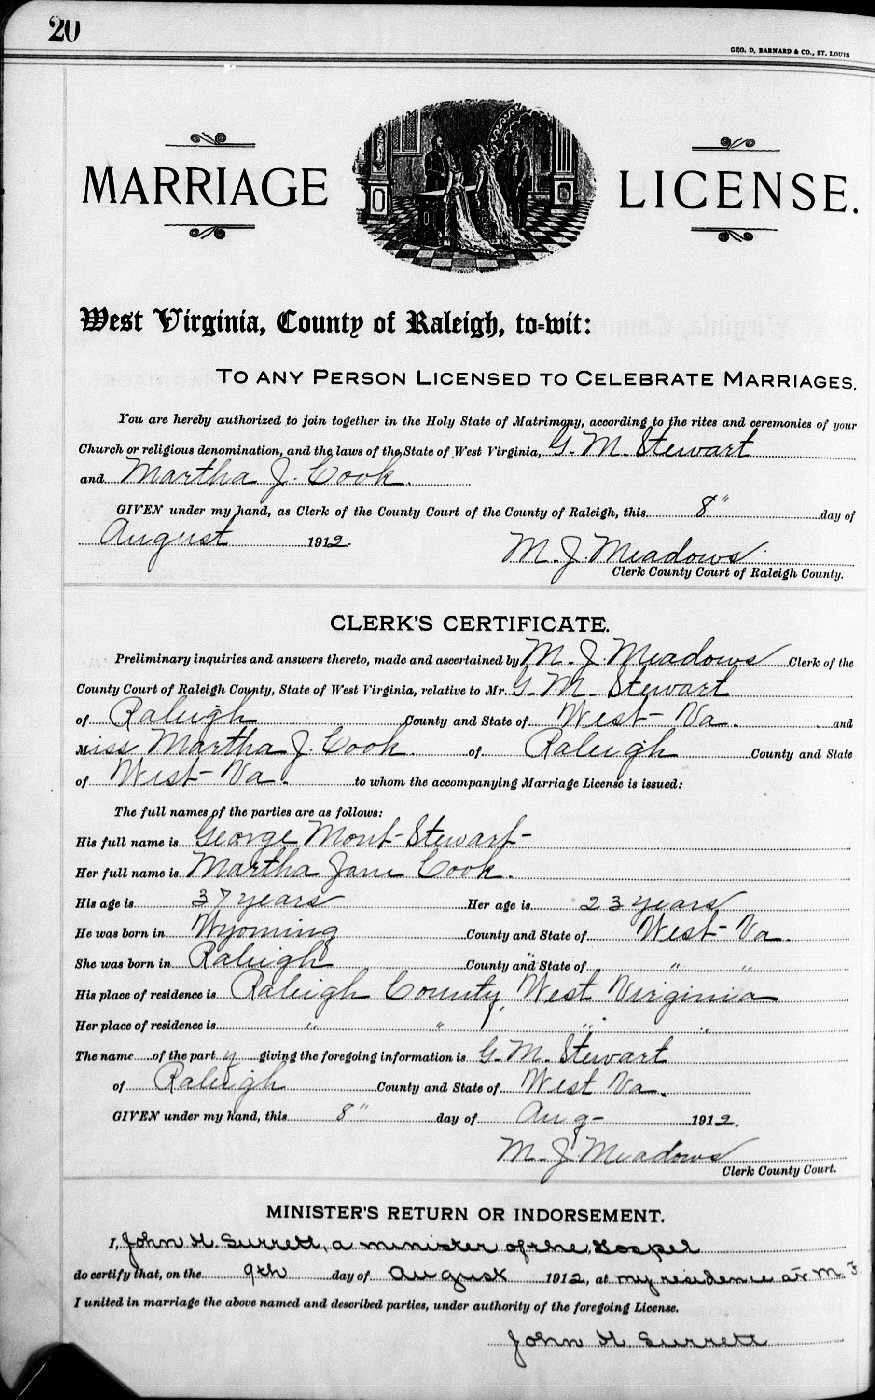 20
GEO. D. BARNARD & CO., ST. LOUIS
MARRIAGE LICENSE.
West Virginia, County of Raleigh, to-wit:
TO ANY PERSON LICENSED TO CELEBRATE MARRIAGES.
You are hereby authorized to join together in the Holy State of Matrimony, according to the rites and ceremonies of your
Church or religious denomination, and the laws of the State of West Virginia, G. M. Stewart
and Martha J. Cook.
GIVEN under my hand, as Clerk of the County Court of the County of Raleigh, this 8" day of
August 1912.
M. J. Meadows
Clerk County Court of Raleigh County.
CLERK'S CERTIFICATE.
Preliminary inquiries and answers thereto, made and ascertained by M. J. Meadows Clerk of the
County Court of Raleigh County, State of West Virginia, relative to Mr. G. M. Stewart
of Raleigh County and State of West-Va. and
Miss Martha J. Cook. of Raleigh County and State
of West-Va. to whom the accompanying Marriage License is issued:
The full names of the parties are as follows:
His full name is George Mont-Stewart-
Her full name is Martha Jane Cook.
His age is 37 years Her age is 23 years
He was born in Wyoming County and State of West-Va.
She was born in Raleigh County and State of " "
His place of residence is Raleigh County, West Virginia
Her place of residence is " " " "
The name of the party giving the foregoing information is G. M. Stewart
of Raleigh County and State of West Va.
GIVEN under my hand, this 8" day of Aug- 1912.
M. J. Meadows
Clerk County Court.
MINISTER'S RETURN OR INDORSEMENT.
I, John H. Surrett, a minister of the Gospel
do certify that, on the 9th day of August 1912, at my residence at M. F
I united in marriage the above named and described parties, under authority of the foregoing License.
John H Surrett